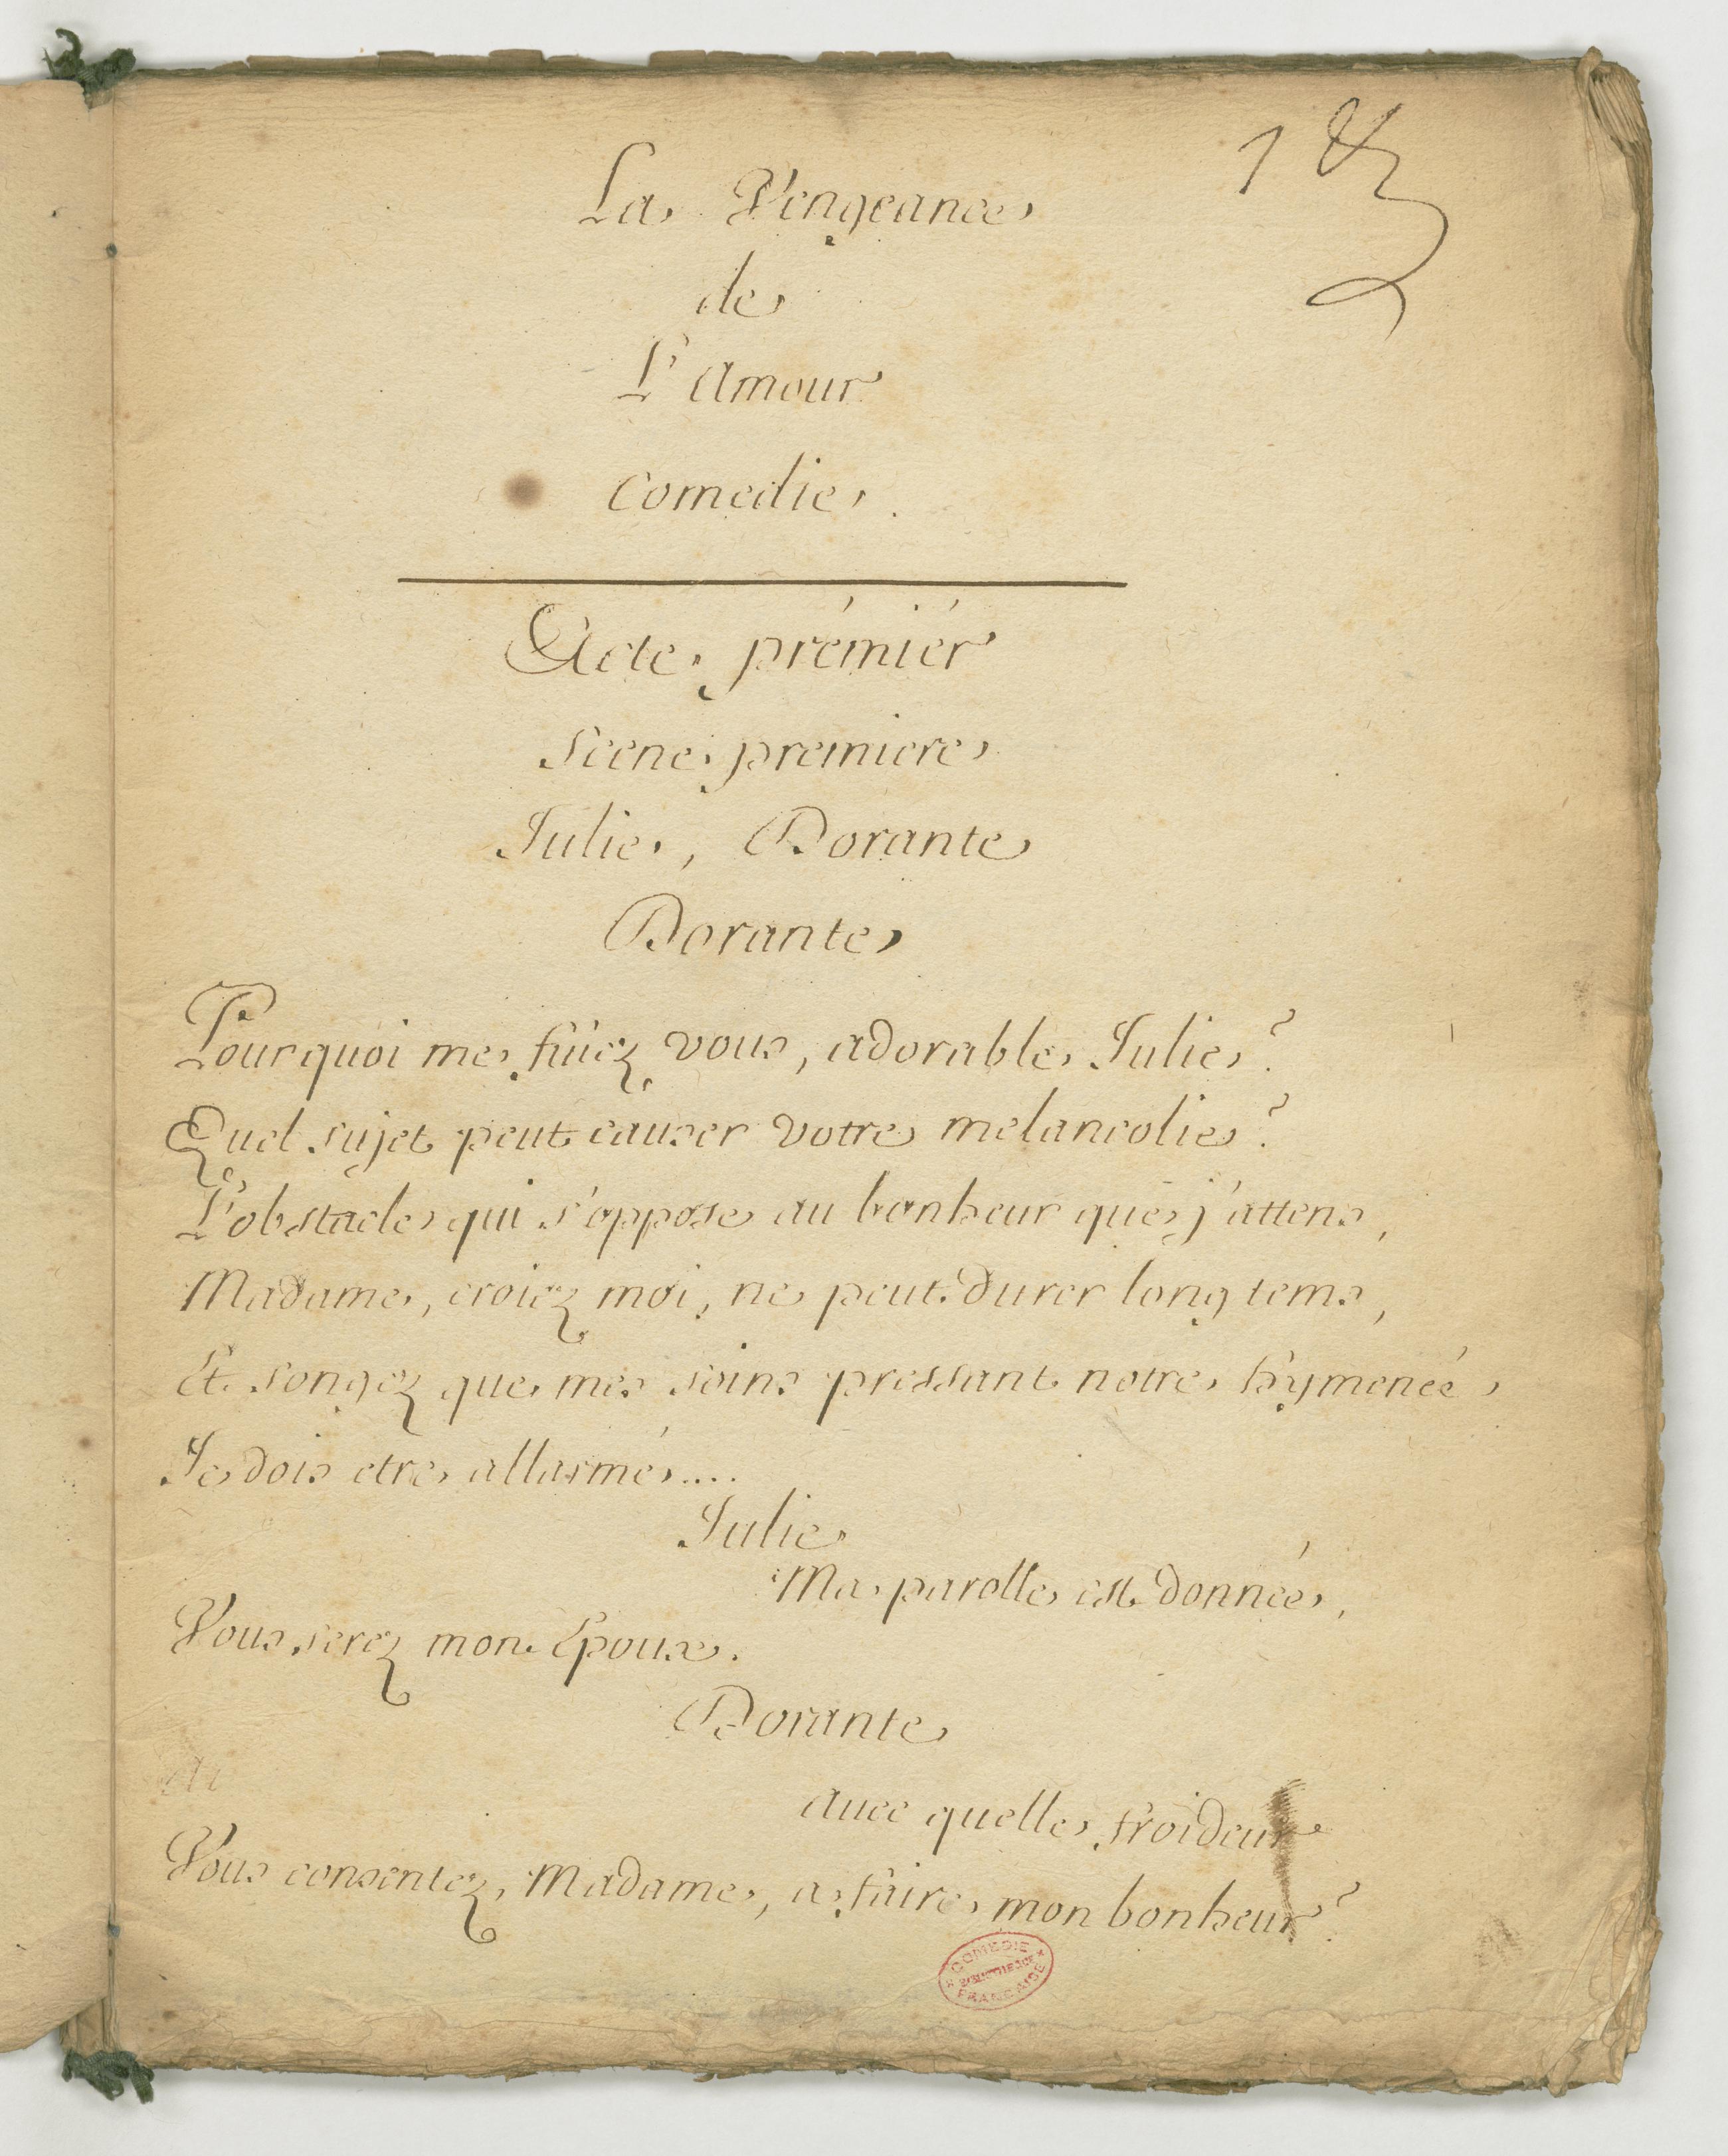 1
La Vengeance
de
L'Amour
Comedie.
Acte prémiér
Scene premiere
Julie, Dorante
Dorante
Pourquoi me fuiez vous, adorable Julie?
Quel sujet peut causer votre melancolie?
L'obstacle qui s'oppose au bonheur que j'attens,
Madame, croiez moi, ne peut durer long tems,
Et songez que mes soins pressant notre hymeneé
Je dois etre allarmé....
Julie
Ma parolle est donneé,
Vous serez mon Epoux.
Dorante
avec quelle froideur
Vous consentez, Madame, a faire mon bonheur?
COMEDIE
BIBLIOTHEQUE
FRANÇAISE